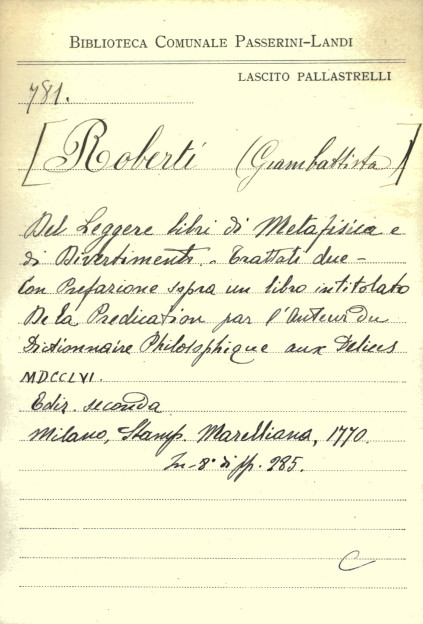 BIBLIOTECA COMUNALE PASSERINI-LANDI
LASCITO PALLASTRELLI
781.
[Roberti (Giambattista)]
Del Leggere libri di Metafisica e
di Divertimento. - Trattati due -
Con Prefazione sopra un libro intitolato
De la Predication par l'Auteur du
Dictionnaire Philosophique aux Delices
MDCCLVI.
Ediz. seconda
Milano, Stamp. Marelliana, 1770.
In-8° di pp. 285.
C